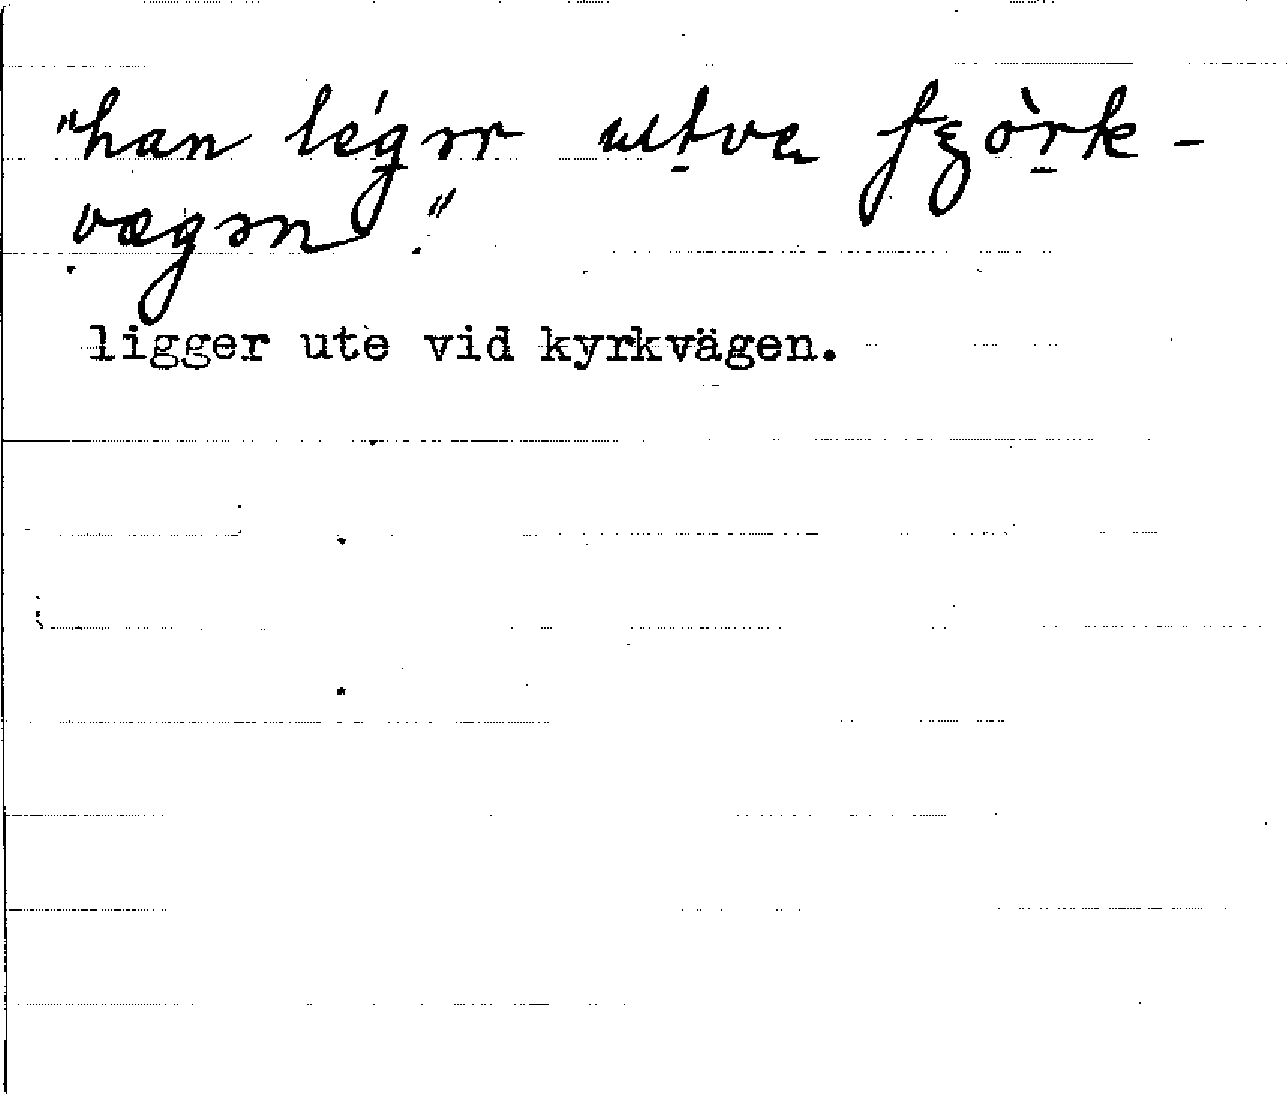 "han légər utve fʒòrk-
vægən."
ligger ute vid kyrkvägen.